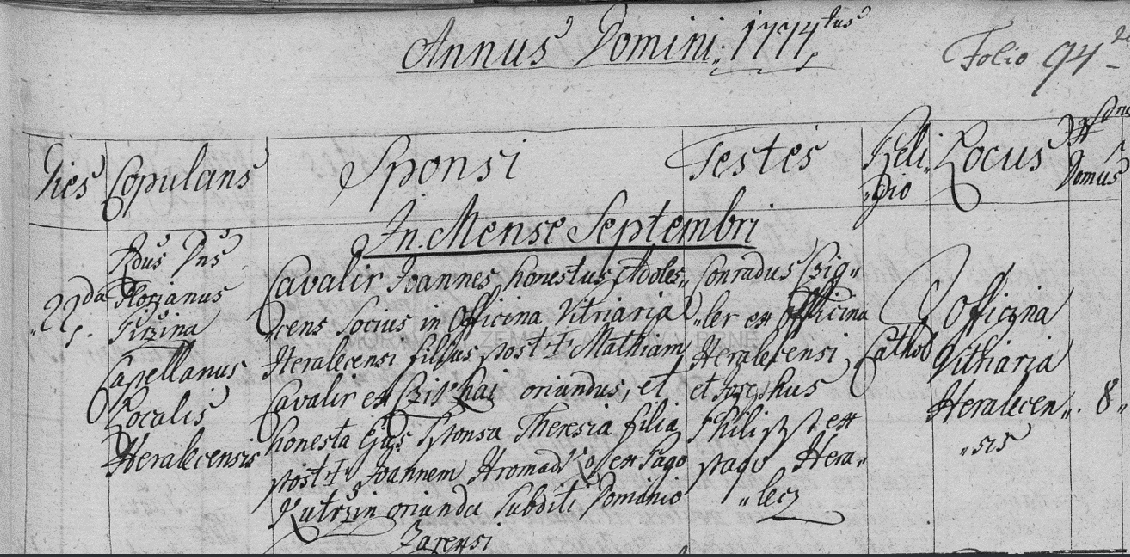 Annus Domini 1774tus
Folio 94
Dies Copulans Sponsi Testes Reli- Locus Nus
"gio Domus
In Mense Septembri
22da
Rdus Dns
Florianus
Firzina
Capellanus
Localis
Heralecensis
Cavalir Joannes honestus Adoles-
cens Socius in Officina Vitriaria
Heralecensi filius post + Mathiam
Cavalir ex oriundus, et
honesta Ejus Sponsa Theresia filia
post + Joannem ex Pago
Kutrzin orianda Subditi Dominio
Zarensi
Conradus
"ler ex Officina
Heralecensi
et Josephus
Philipp ex
pago Hera-
"lecz
Cathol
Officina
Vitriaria
Heralecen"
"sis
8"